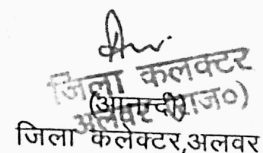 जिला कलक्टर
अलवर (राज०)
(आनन्दी)
जिला कलेक्टर,अलवर